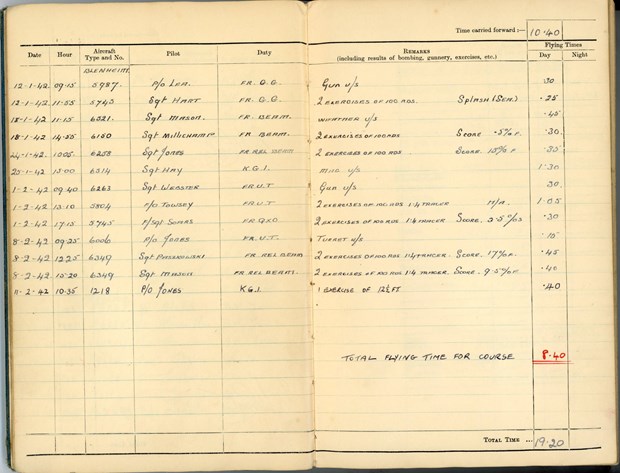 Time carried forward :— 10·40
Date Hour Aircraft Type and No. Pilot Duty Remarks (including results of bombing, gunnery, exercises, etc.) Flying Times Day Night
BLENHEIM
12-1-42 09·15 5987. P/o LEA. FR. G.G. GUN u/s ·30
12-1-42 11·55 5743 Sgt HART FR. G.G. 2 EXERCISES OF 100 RDS. SPLASH (SEA.) ·25
11·15 6321. Sgt MASON. FR. BEAM. WEATHER u/s ·45
18-1-42 14·55 6150 Sgt MILLICHAMP FR BEAM. 2 EXERCISES OF 100 RDS SCORE ·5% F. ·30
24-1-42 1005. 6258 Sgt JONES FR. REL BEAM 2 EXERCISES OF 100 RDS. SCORE. 15% F ·35
25-1-42 Sgt HAY K.G.1. u/s 1·30
1-2-42 09.40 6263 Sgt WEBSTER FR.U.T GUN u/s 30
1-2-42 13·10 P/o TOWSEY FR.U.T 2 EXERCISES OF 100 RDS 1:4 TRACER N/A. 1·05
1-2-42 17·15 5745 F/Sgt 2 EXERCISES OF 100 RDS 1:4 TRACER SCORE ·30
8-2-42 09·35 6006 P/o JONES FR.U.T. TURRET u/s ·15
8-2-42 1225 6349 Sgt FR. REL BEAM 2 EXERCISES OF 100 RDS 1:4 TRACER. SCORE. 17% F. ·45
8-2-42 15·20 6349 Sgt MASON FR. REL BEAM. 2 EXERCISES OF 100 RDS 1:4 TRACER. SCORE. 9·5% F. ·40
11-2-42 10·35 1218 P/O JONES K.G.1. 1 EXERCISE OF 12½ FT ·40
TOTAL FLYING TIME FOR COURSE 8·40
Total Time ... 19·20